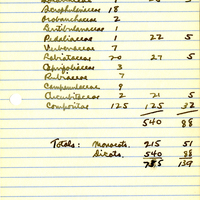 Scrophulariaceae 18
Orobanchaceae 2
Lentibulariaceae 1
Pedaliaceae 1 22 5
Verbenaceae 7
Labiatae 20 27 5
Caprifoliaceae 3
Rubiaceae 7
Campanulaceae 9
Cucurbitaceae 2 21 5
Compositae 125 125 32
540 88
Totals: Monocots. 215 51
Dicots. 540 88
755 139